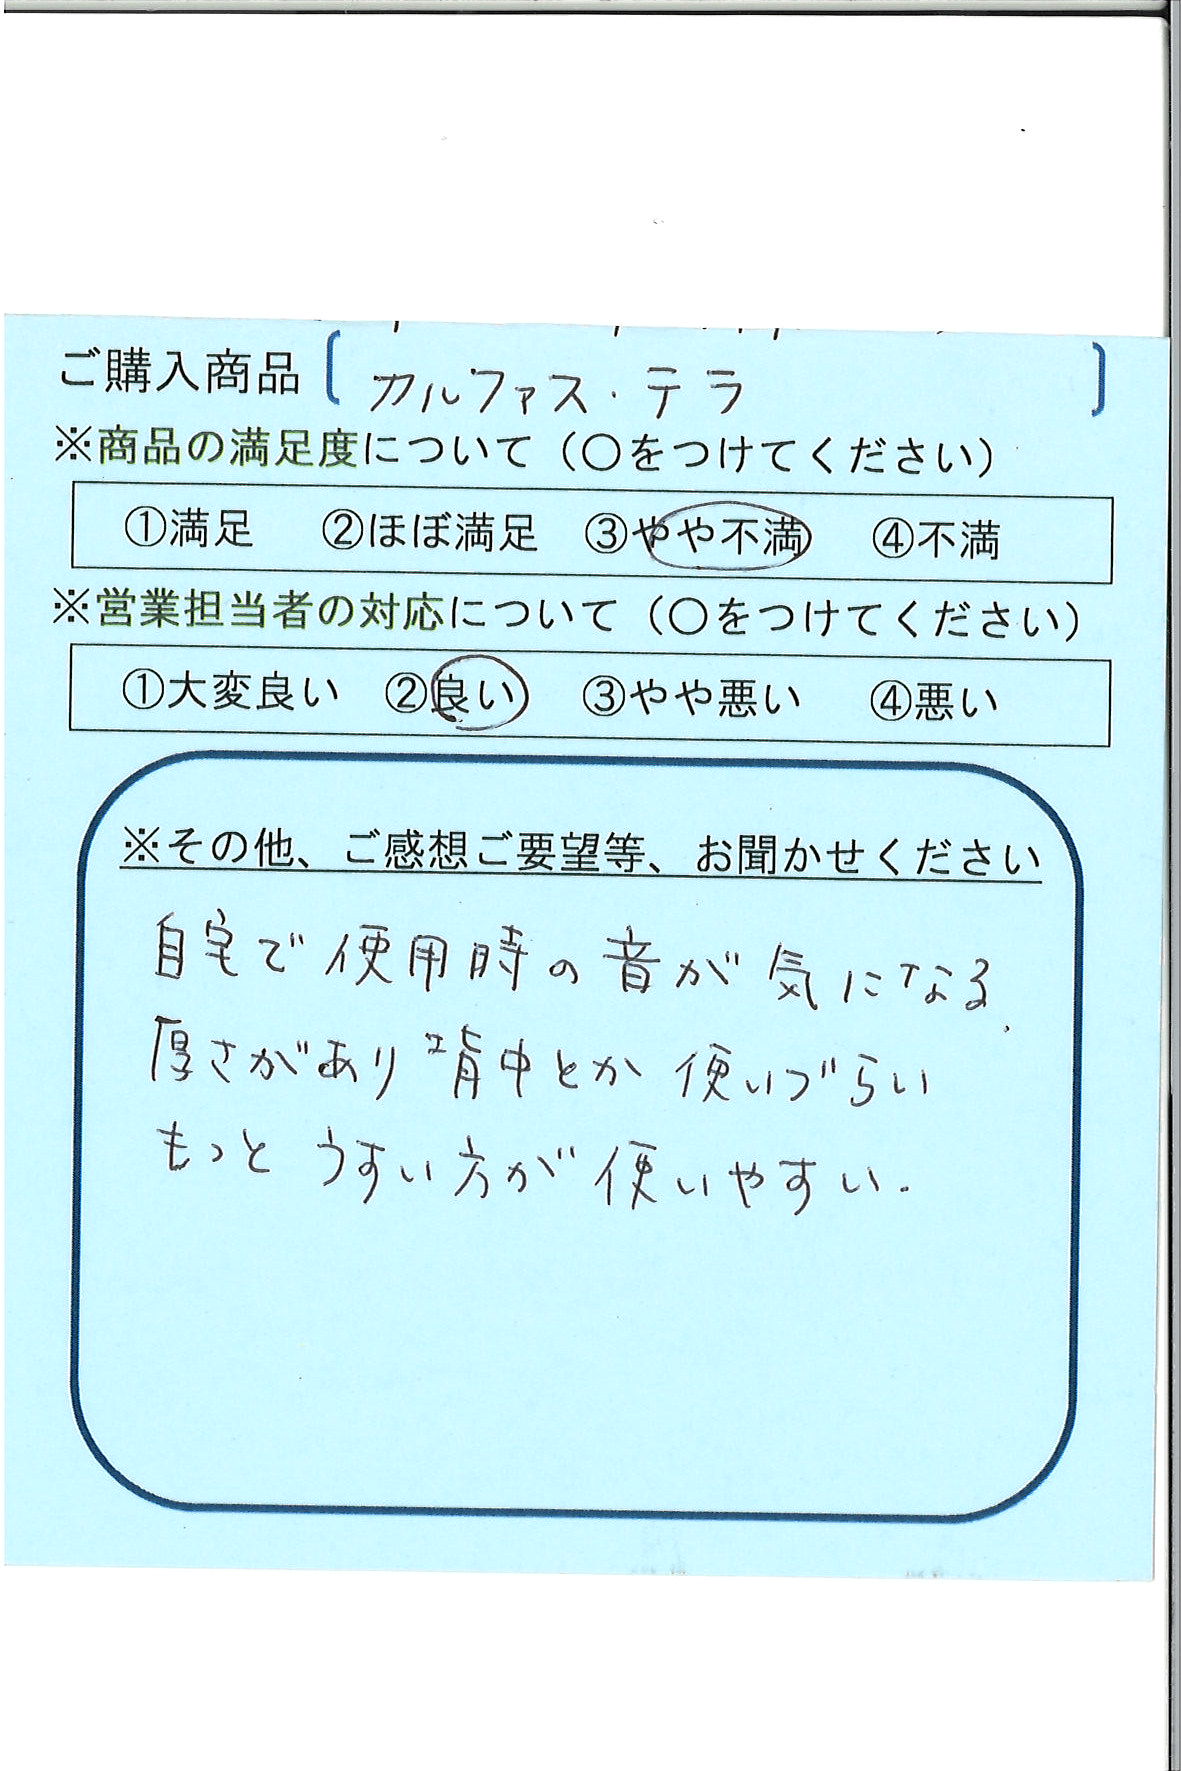 ご購入商品〔カルファス・テラ〕
※商品の満足度について（○をつけてください）
①満足 ②ほぼ満足 ③やや不満 ④不満
※営業担当者の対応について（○をつけてください）
①大変良い ②良い ③やや悪い ④悪い
※その他、ご感想ご要望等、お聞かせください
自宅で使用時の音が気になる、
厚さがあり背中とか使いづらい
もっとうすい方が使いやすい.